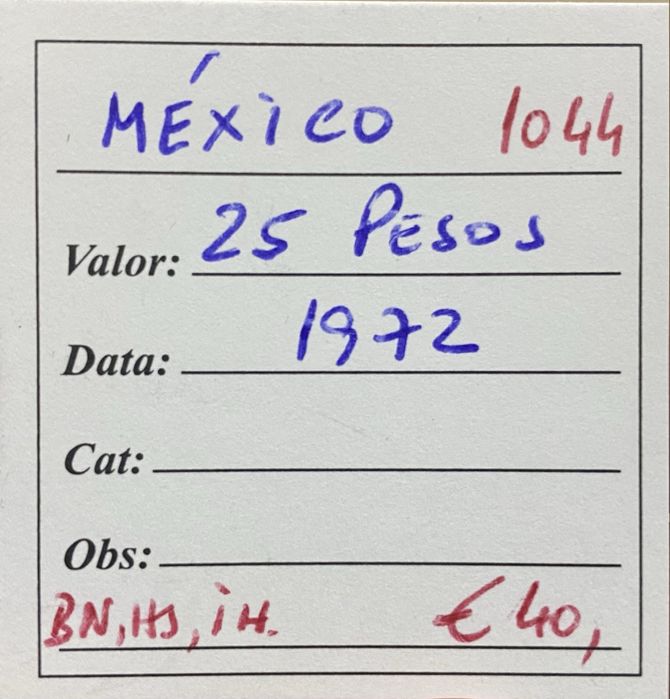 MÉXICO 1044
Valor: 25 PESOS
Data: 1972
Cat:
Obs:
BN, HJ, iH. € 40,